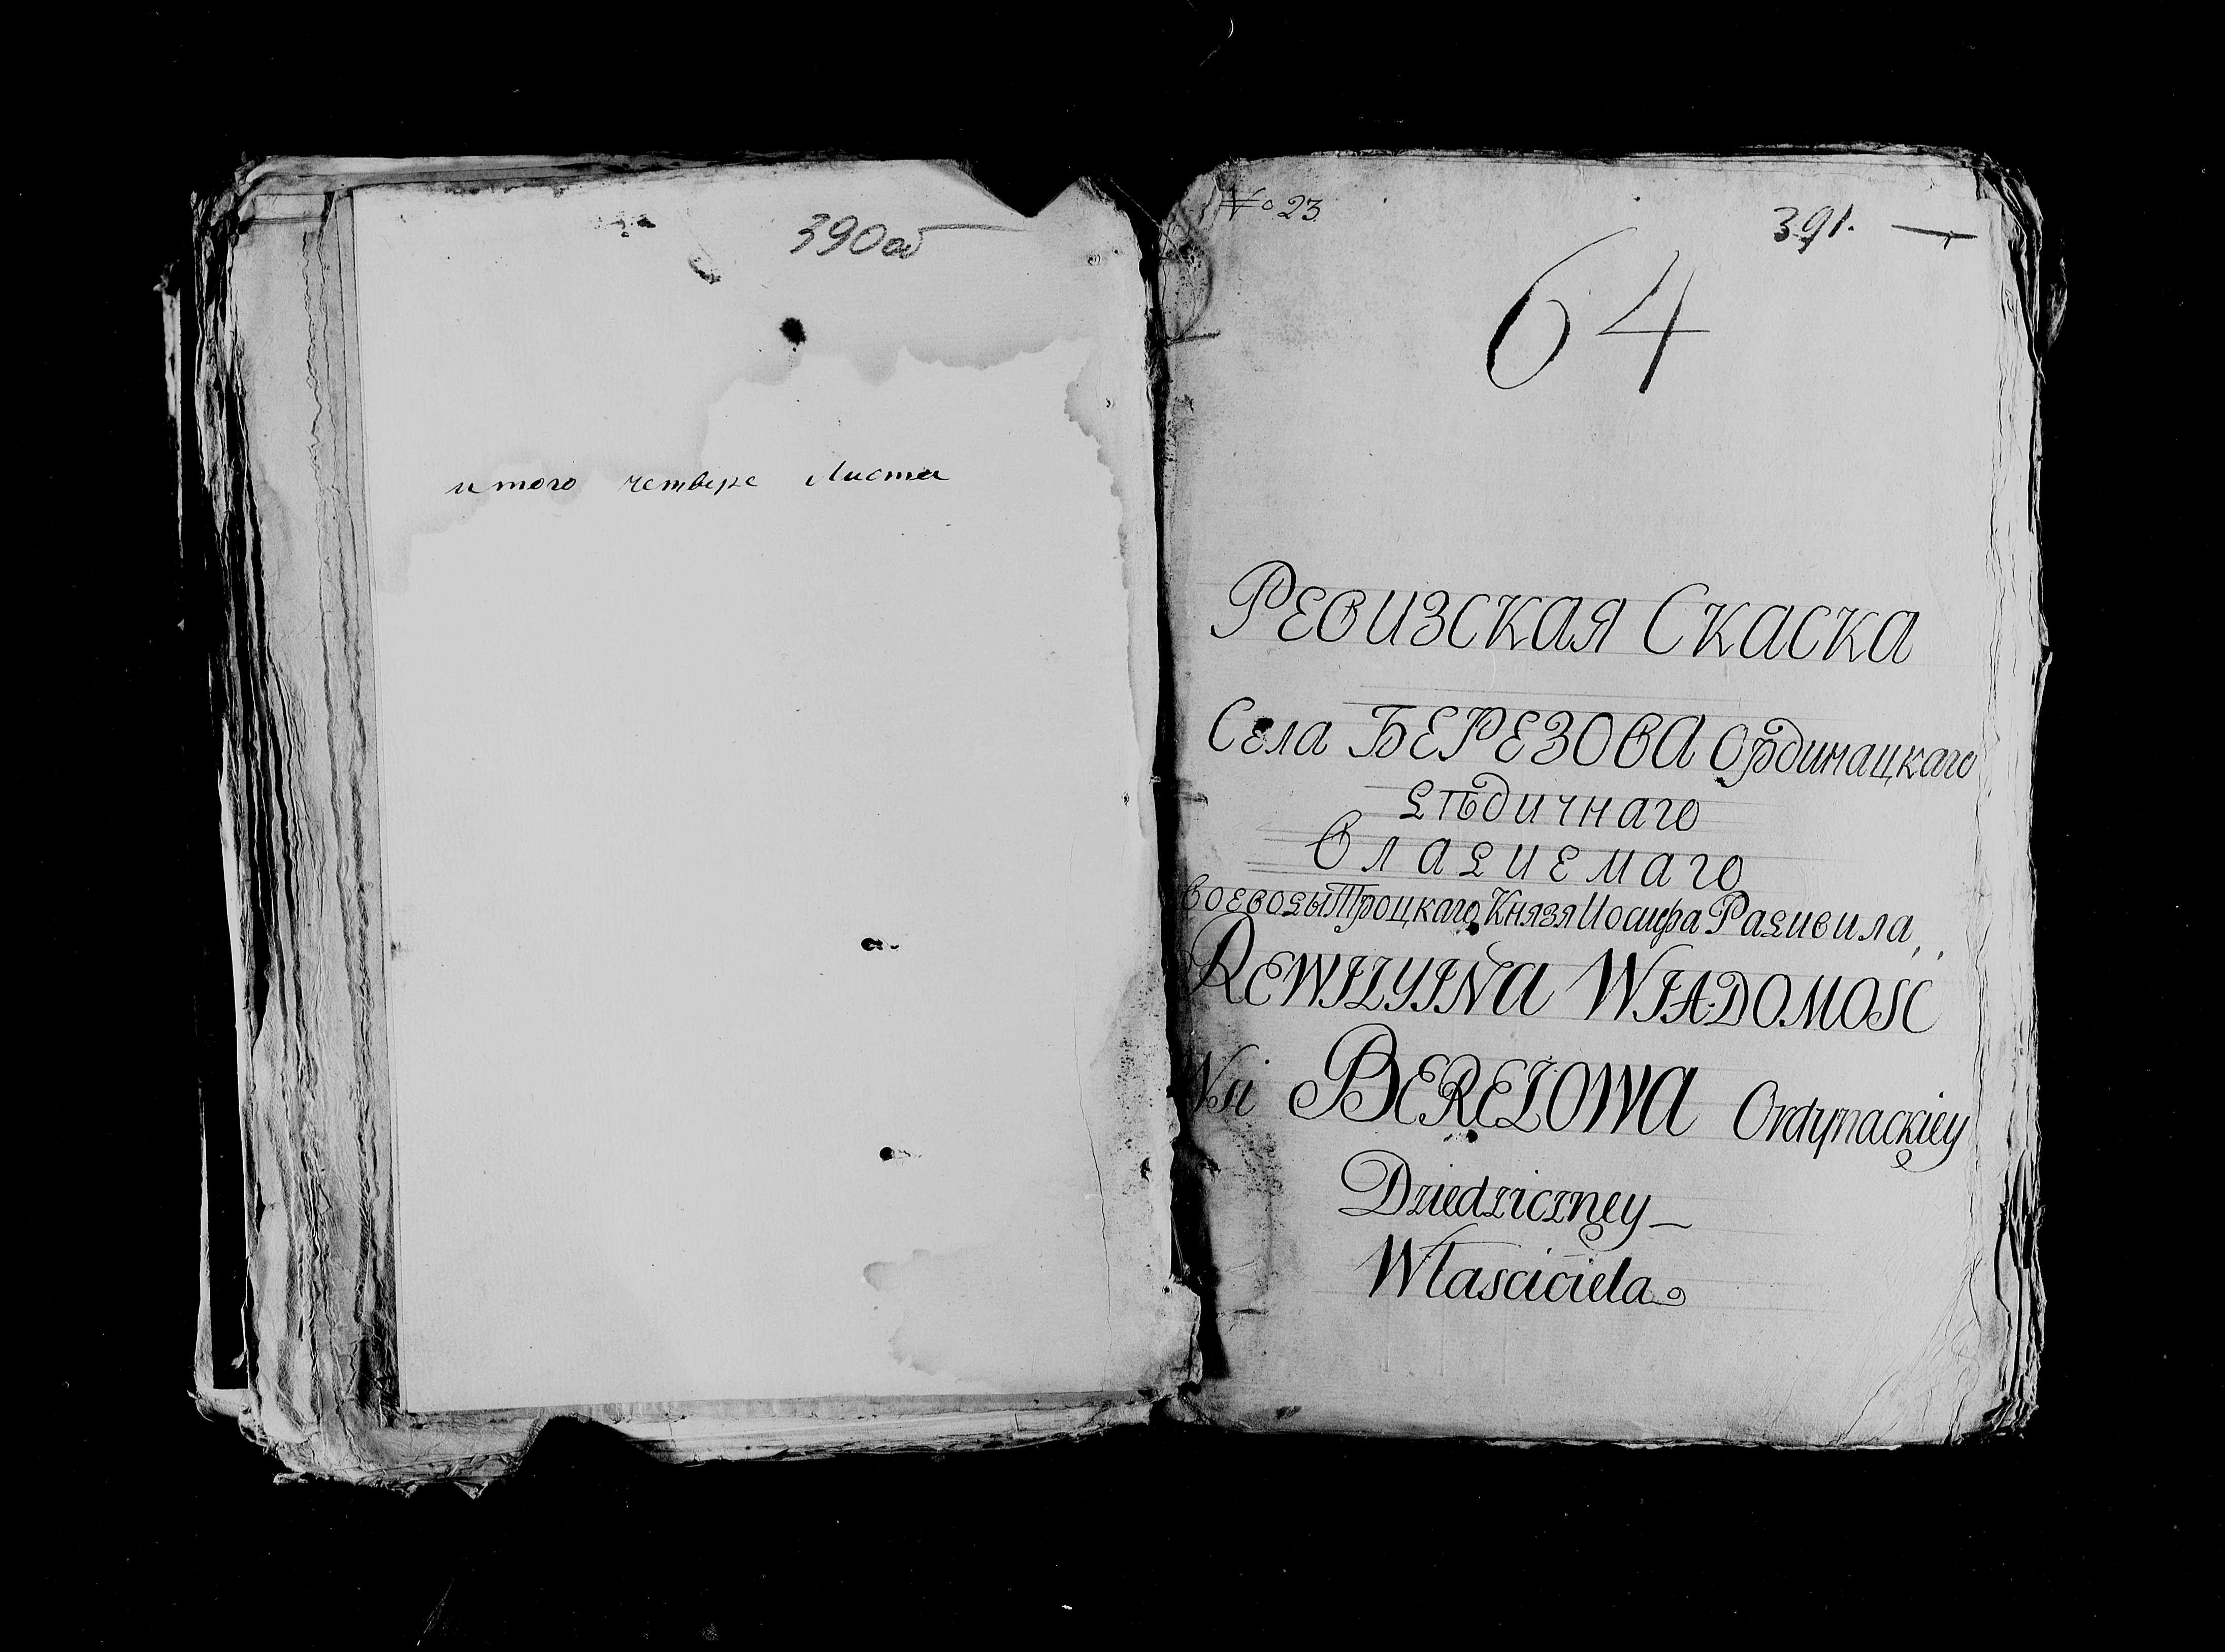 390об
итого четвере листа
№ 23
391.
64
Ревизская Скаска
Села БЕРЕЗОВА Ординацкаго
дѣдичнаго
владиемаго
воеводы Троцкаго Князя Иосифа Радивила,
REWIZYINA WIADOMOSC
Wsi BEREZOWA Ordynackiey
Dziedziczney
Własciciela